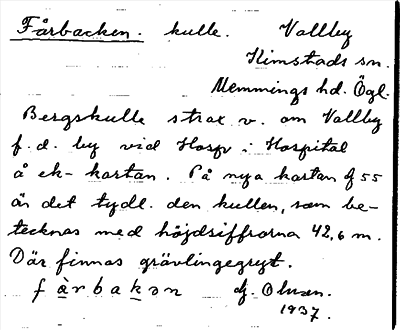 Fårbacken. kulle. Vallby
Kimstads sn.
Memmings hd. Ögl.
Bergskulle strax v. om Vallby
f. d. by vid Hosp i Hospital
å ek-kartan. På nya kartan 55
är det tydl. den kullen, som be-
tecknas med höjdsiffrorna 42,6 m.
Där finnas grävlingegryt.
fàrbakən Olsson.
1937.